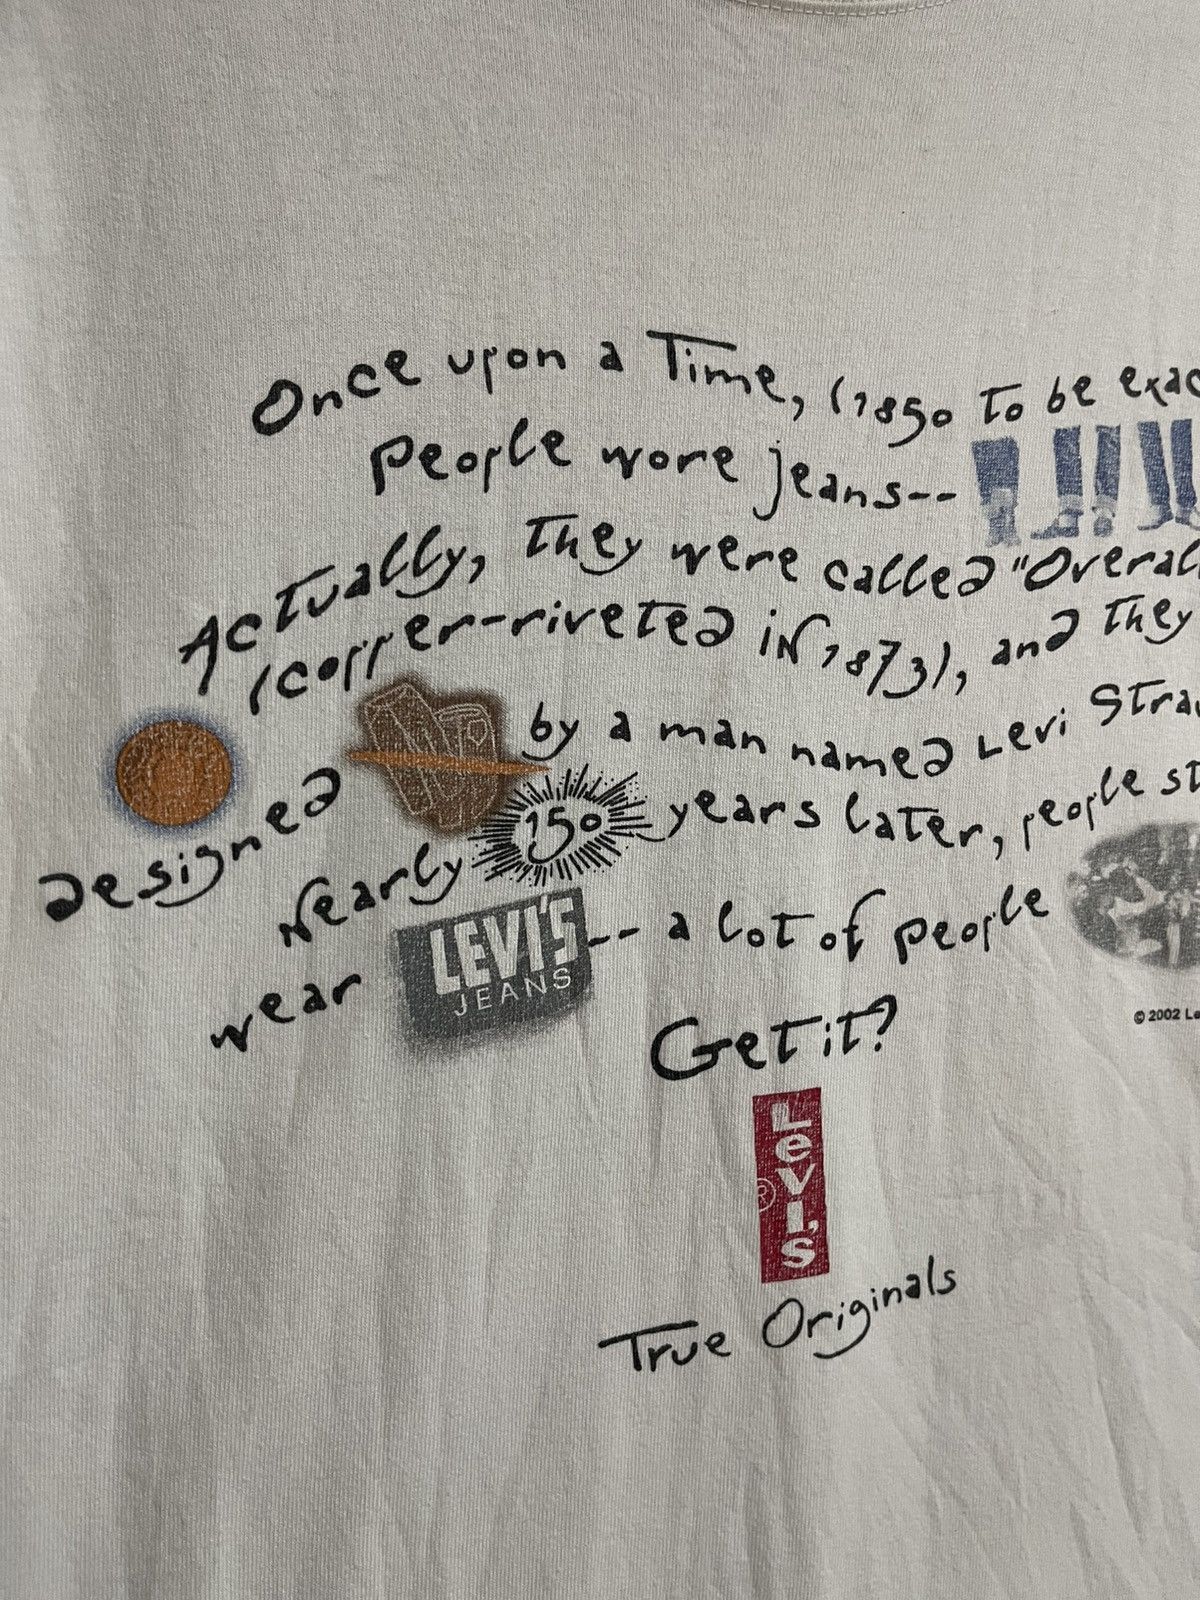 Once upon a Time, (1850 to be exac
People wore jeans--
Actually, they were called "Overal
(copper-riveted in 1873), and they
designed by a man named Levi Strau
Nearly 150 years later, people st
wear LEVI'S JEANS -- a lot of people
© 2002 Le
Get it?
Levi's ®
True Originals